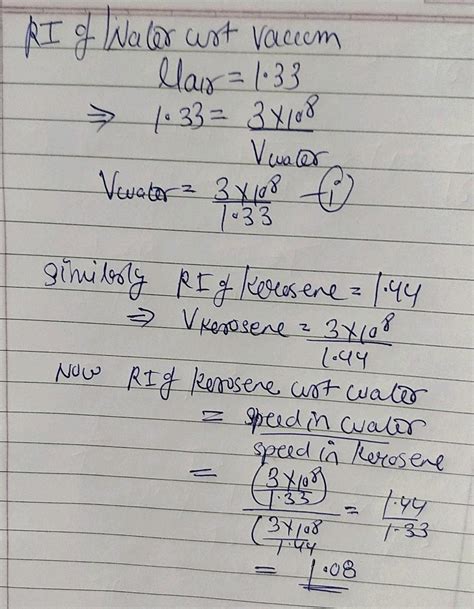 RI of Water wrt Vaccum
μair = 1.33
⇒ 1.33 = 3×10⁸ / Vwater
Vwater = 3×10⁸ / 1.33 —(i)
Similarly RI of Kerosene = 1.44
⇒ VKerosene = 3×10⁸ / 1.44
Now RI of Kerosene wrt water
= speed in water / speed in Kerosene
= (3×10⁸ / 1.33) / (3×10⁸ / 1.44) = 1.44 / 1.33
= 1.08